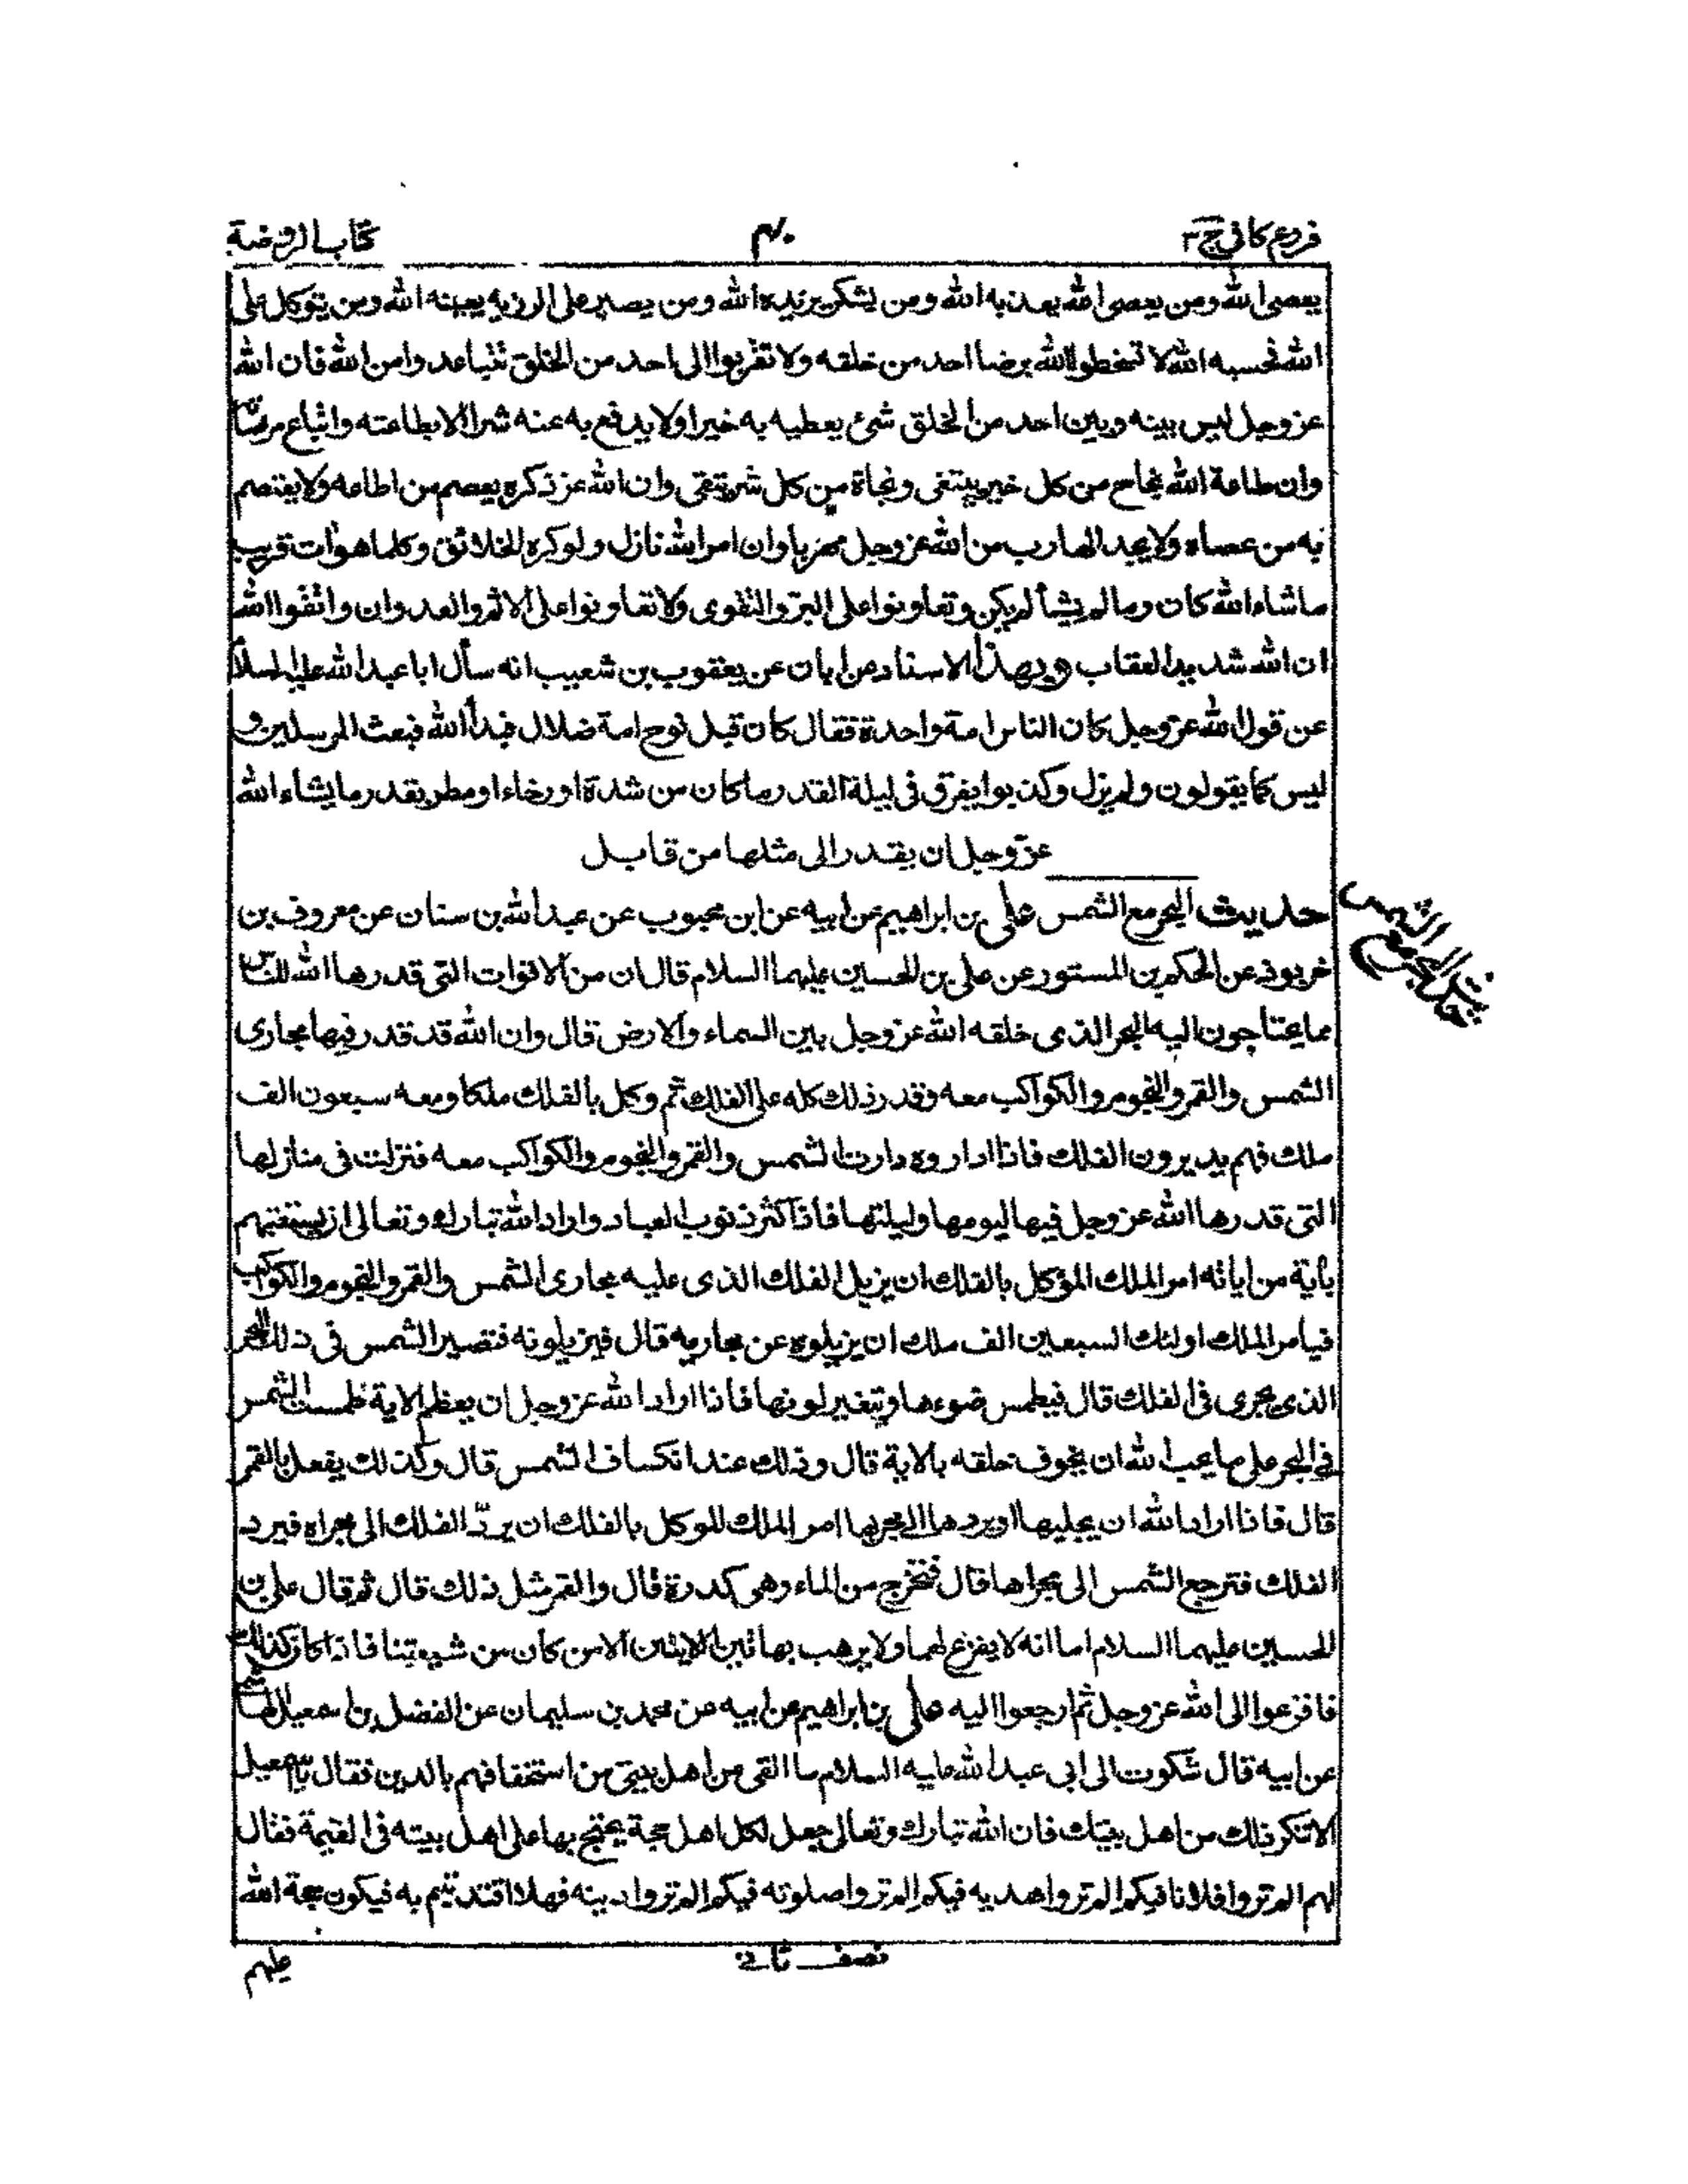 فروع کافی ج ٣
۴۰
کتاب الروضة
یعصی الله ومن یعصی الله یعذبه الله ومن یشکر یزیده الله ومن یصبر علی الرزیه یعینه الله ومن یتوکل علی
الله فحسبه الله لا تسخطوا الله برضا احد من خلقه ولا تقربوا الی احد من الخلق تتباعدوا من الله فان الله
عز وجل لیس بینه وبین احد من الخلق شئ یعطیه به خیرا ولا یدفع به عنه شرا الا بطاعته واتباع مرضاته
وان طاعة الله نجاح من کل خیر یبتغی ونجاة من کل شر یتقی وان الله عز ذکره یعصم من اطاعه ولا یعتصم
به من عصاه ولا یجد الهارب من الله عز وجل مهربا وان امر الله نازل ولو کره الخلائق وکلما هو ات قریب
ما شاء الله کان وما لم یشأ لم یکن وتعاونوا علی البر والتقوی ولا تعاونوا علی الاثم والعدوان واتقوا الله
ان الله شدید العقاب وبهذا الاسناد عن ابان عن یعقوب بن شعیب انه سأل ابا عبد الله علیه السلام
عن قول الله عز وجل کان الناس امة واحدة فقال کان قبل نوح امة ضلال فبدأ الله فبعث المرسلین و
لیس کما یقولون ولم یزل وکذبوا یفرق فی لیلة القدر ما کان من شدة او رخاء او مطر بقدر ما یشاء الله
عز وجل ان یقدر الی مثلها من قابل
حدیث البحر مع الشمس علی بن ابراهیم عن ابیه عن ابن محبوب عن عبد الله بن سنان عن معروف بن
خربوذ عن الحکم بن المستور عن علی بن الحسین علیهما السلام قال ان من الاقوات التی قدرها الله للناس
مما یحتاجون الیه البحر الذی خلقه الله عز وجل بین السماء والارض قال وان الله قد قدر فیها مجاری
الشمس والقمر والنجوم والکواکب معه وقدر ذلک کله علی الفلک ثم وکل بالفلک ملکا ومعه سبعون الف
ملک فهم یدیرون الفلک فاذا اداروه دارت الشمس والقمر والنجوم والکواکب معه فنزلت فی منازلها
التی قدرها الله عز وجل فیها لیومها ولیلتها فاذا کثر ذنوب العباد واراد الله تبارک وتعالی ان یستعتبهم
بأیة من ایاته امر الملک المؤکل بالفلک ان یزیل الفلک الذی علیه مجاری الشمس والقمر والنجوم والکواکب
فیامر الملک اولئک السبعین الف ملک ان یزیلوه عن مجاریه قال فیزیلونه فتصیر الشمس فی ذلک البحر
الذی یجری فی الفلک قال فیطمس ضوءها ویتغیر لونها فاذا اراد الله عز وجل ان یعظم الایة طمست الشمس
فی البحر علی ما یحب الله ان یخوف خلقه بالایة قال وذلک عند انکساف الشمس قال وکذلک یفعل بالقمر
قال فاذا اراد الله ان یجلیها او یردها الی مجریها امر الملک الموکل بالفلک ان یردّ الفلک الی مجراه فیرد
الفلک فترجع الشمس الی مجراها قال فتخرج من الماء وهی کدرة قال والقمر مثل ذلک قال ثم قال علی بن
الحسین علیهما السلام اما انه لا یفزع لهما ولا یرهب بهاتین الایتین الا من کان من شیعتنا فاذا کان کذلک
فافزعوا الی الله عز وجل ثم ارجعوا الیه علی بن ابراهیم عن ابیه عن محمد بن سلیمان عن الفضل بن اسمعیل الهاشمی
عن ابیه قال شکوت الی ابی عبد الله علیه السلام ما القی من اهل بیتی من استخفافهم بالدین فقال یا اسمعیل
لا تنکر ذلک من اهل بیتک فان الله تبارک وتعالی جعل لکل اهل حجة یحتج بها علی اهل بیته فی القیمة فقال
لهم الم تروا فلانا فیکم الم تروا هدیه فیکم الم تروا صلوته فیکم الم تروا دینه فهلا اقتدیتم به فیکون حجة الله
علیهم
نصف ثانی
حدیث البحر مع الشمس